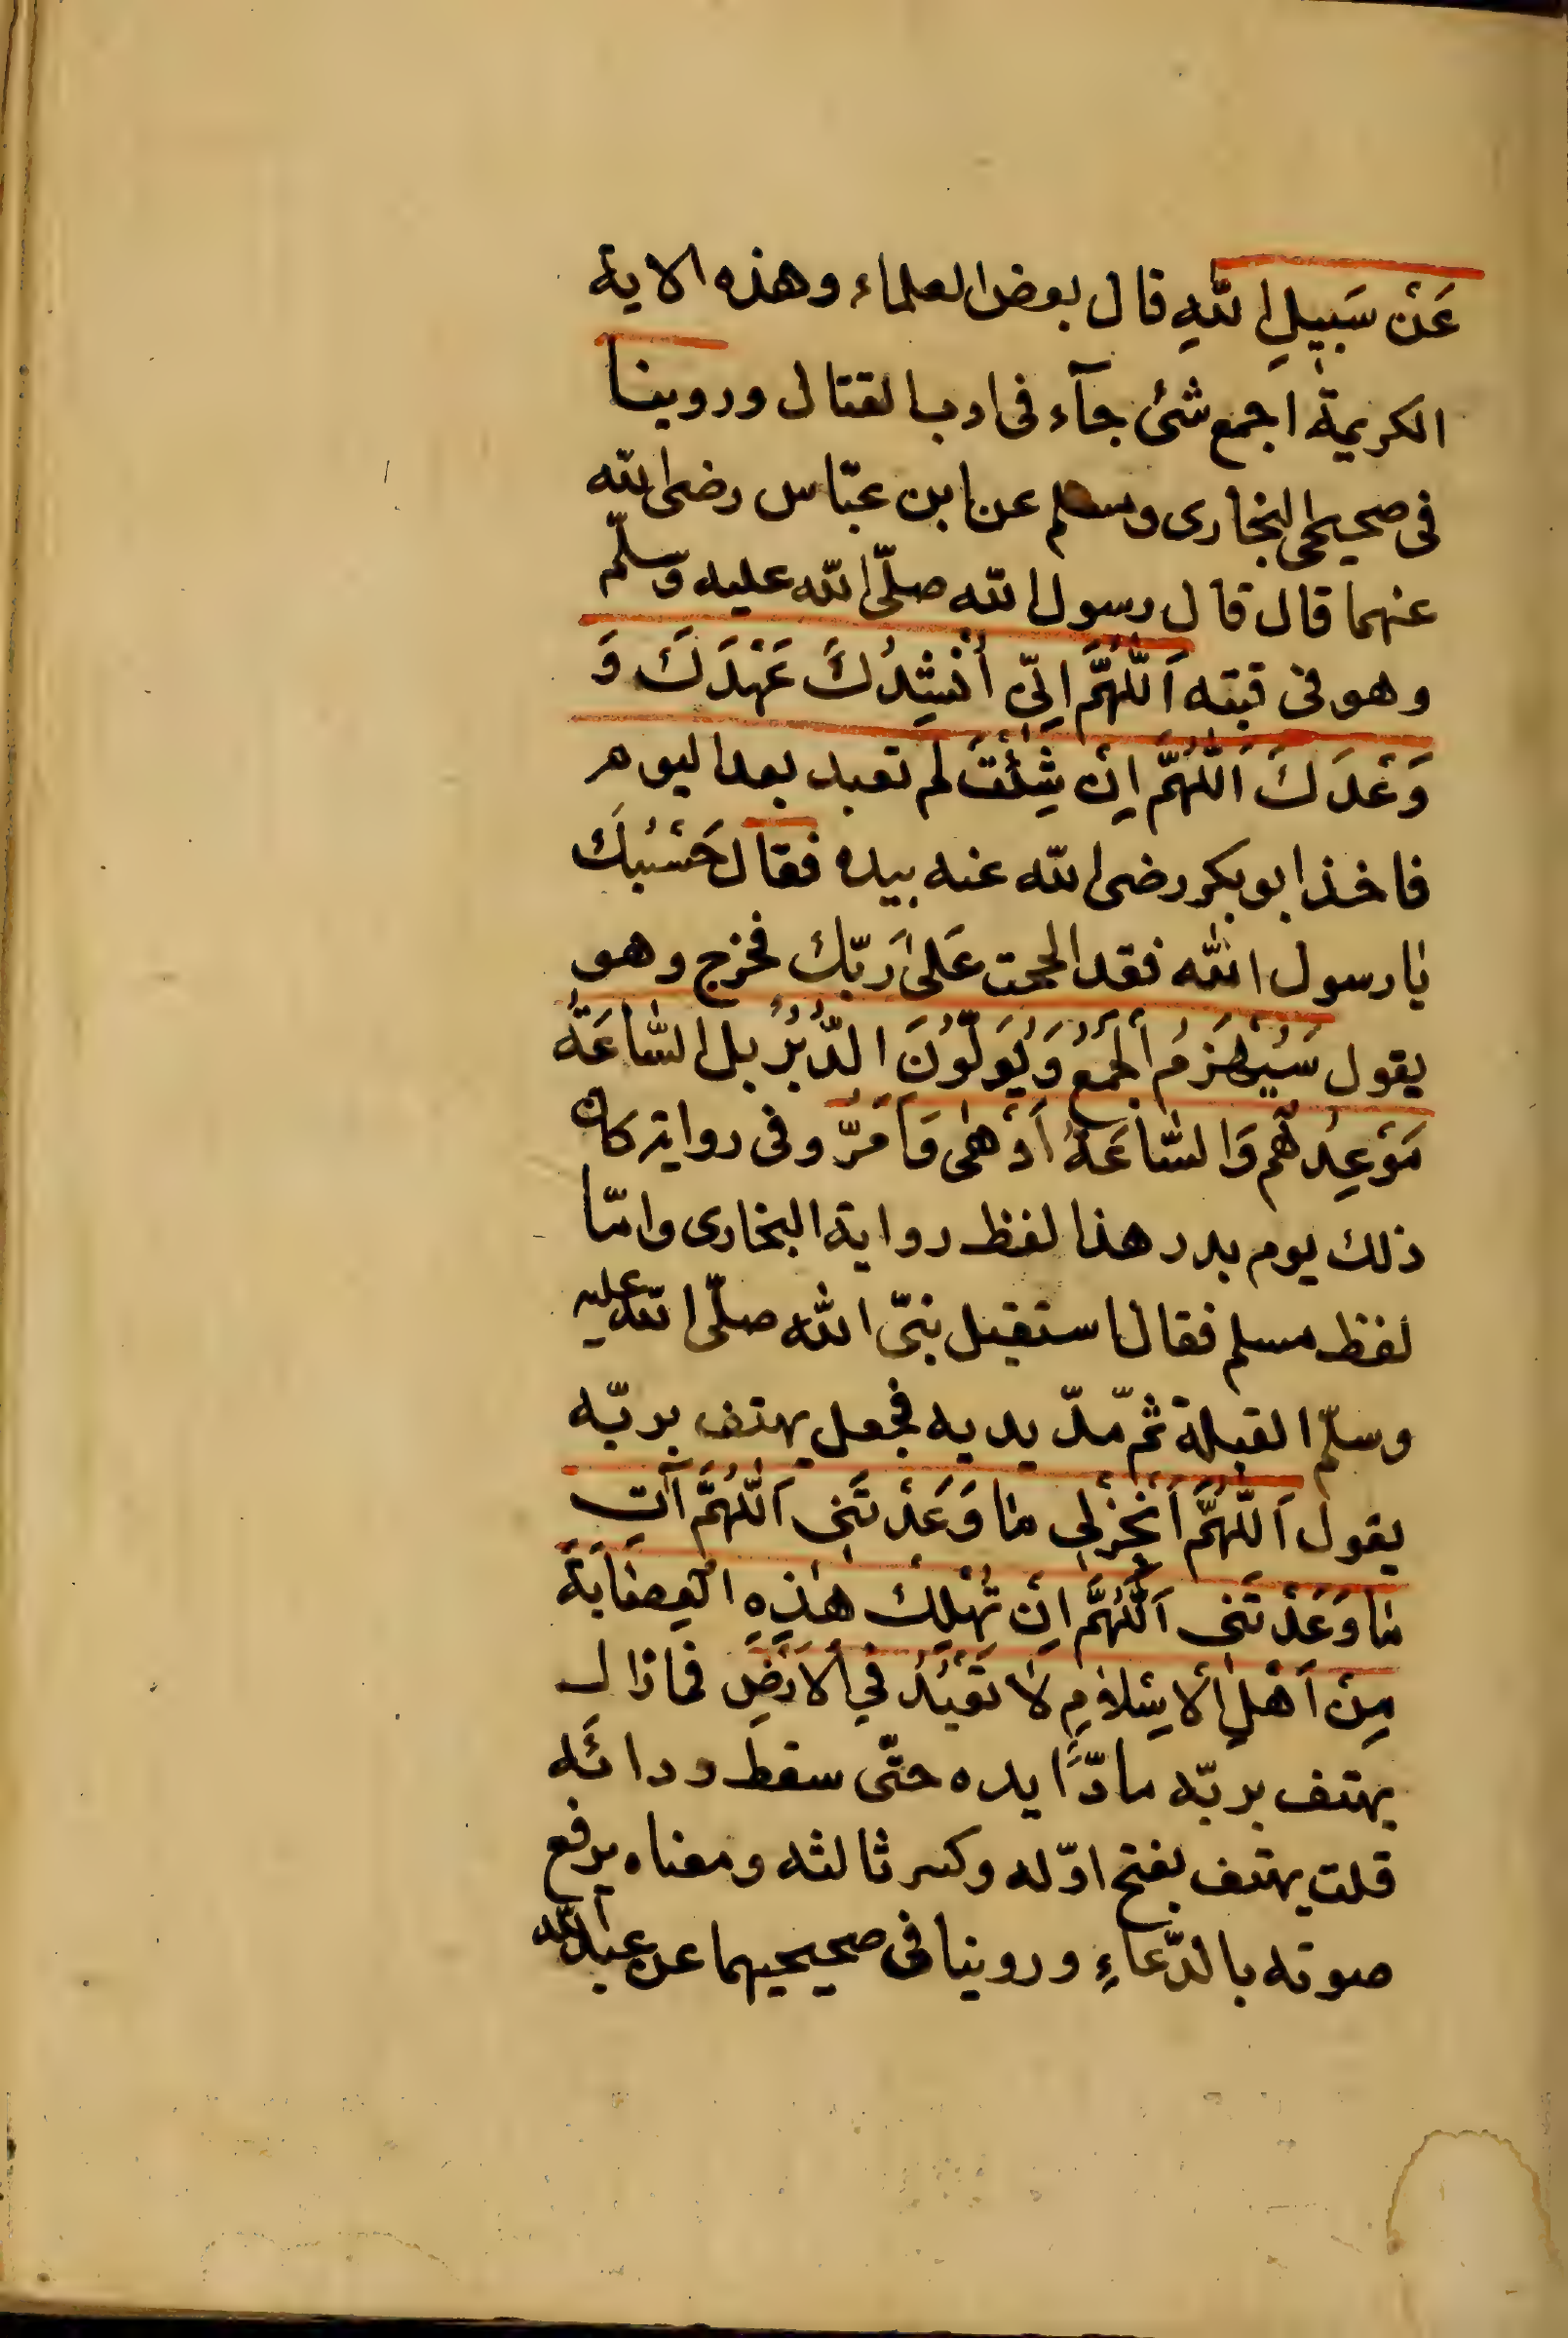 عَنْ سَبِيلِ اللّٰهِ قال بعض العلماء وهذه الاية
الكريمة اجمع شئ جآء فى ادب القتال وروينا
فى صحيحى البخارى ومسلم عن ابن عبّاس رضى الله
عنهما قال قال رسول الله صلّى الله عليه وسلّم
وهو فى قبته اَللّٰهُمَّ اِنِّي اُنْشِدُكَ عَهْدَكَ وَ
وَعْدَكَ اَللّٰهُمَّ اِنْ شِئْتَ لم تعبد بعد اليوم
فاخذ ابو بكر رضى الله عنه بيده فقال حَسْبُكَ
يا رسول الله فقد الححت عَلٰى رَبِّكَ فخرج وهو
يقول سَيُهْزَمُ الْجَمْعُ وَيُوَلُّونَ الدُّبُرَ بل السَّاعَةُ
مَوْعِدُهُمْ وَالسَّاعَةُ اَدْهٰى وَاَمَرُّ وفى رواية كان
ذلك يوم بدر هذا لفظ رواية البخارى وامّا
لفظ مسلم فقال استقبل نبىّ الله صلّى الله عليه
وسلّم القبلة ثمّ مدّ يديه فجعل يهتف بربّه
يقول اَللّٰهُمَّ اَنْجِزْلِي مَا وَعَدْتَنِي اَللّٰهُمَّ آتِ
مَا وَعَدْتَنِي اَللّٰهُمَّ اِنْ تُهْلِكْ هٰذِهِ الْعِصَابَةَ
مِنْ اَهْلِ الْاِسْلَامِ لَا تُعْبَدُ فِي الْاَرْضِ فما زال
يهتف بربّه مادًّا يده حتّى سقط ردائه
قلت يهتف بفتح اوّله وكسر ثالثه ومعناه يرفع
صوته بالدّعاءِ وروينا فى صحيحيهما عن عبد الله